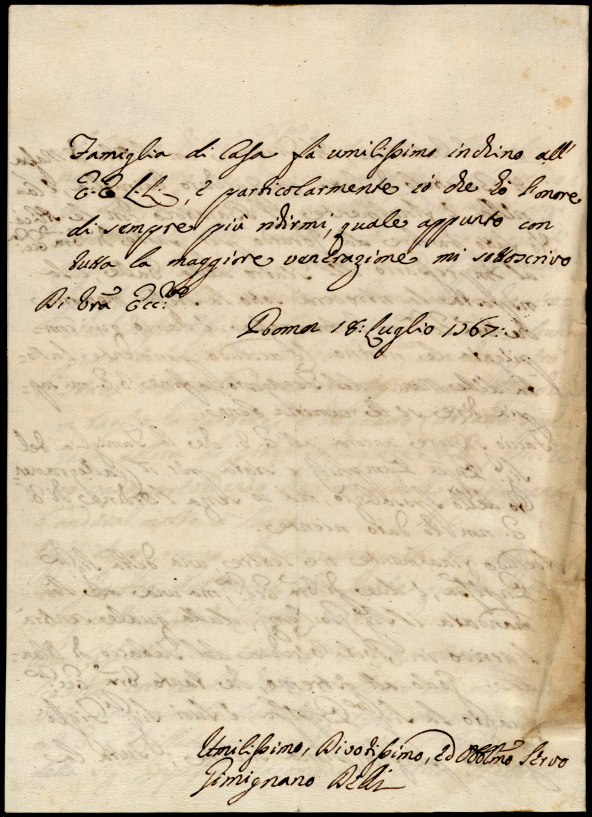 Famiglia di Casa fà umilissimo inchino all'
E.E. LL., e particolarmente io che hò l'onore
di sempre più ridirmi, quale appunto con
tutta la maggiore venerazione mi sottoscrivo
Di Vrã Ecc.
Roma 18: Luglio 1767:
Umilissimo, Divotissimo, ed Obblmõ Servo
Gimignano